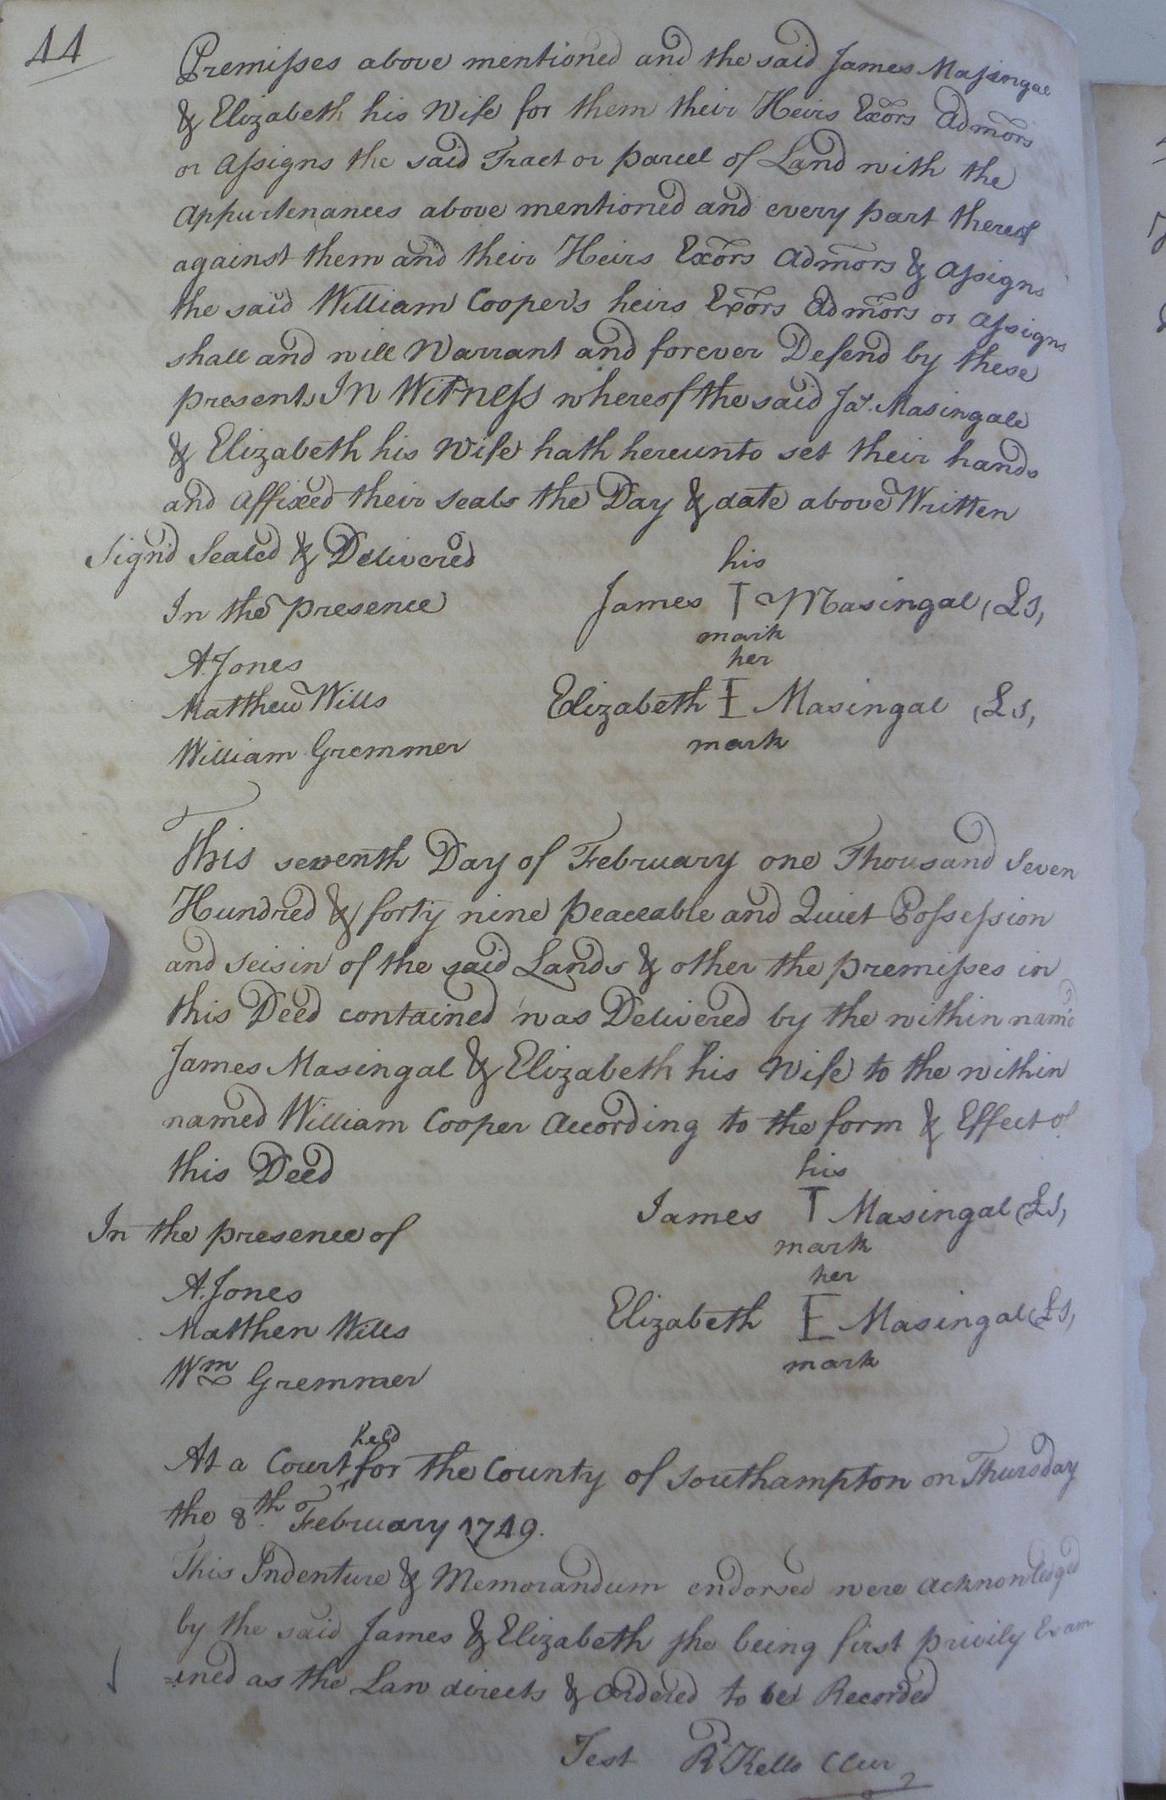 44
Premisses above mentioned and the said James Massingal
& Elizabeth his Wife for them their Heirs Exors Admors
or assigns the said Tract or parcel of Land with the
appurtenances above mentioned and every part thereof
against them and their Heirs Exors admors & assigns
the said William Cooper's heirs Exors admors or assigns
shall and will Warrant and forever Defend by these
presents In Witness whereof the said Jas. Masingale
& Elizabeth his Wife hath hereunto set their hands
and affixed their seals the Day & date above Written
Sign'd Sealed & Delivered his
In the presence James T Masingal (LS,
mark
A. Jones her
Matthew Wills Elizabeth E Masingal (LS,
William Gremmer mark
This seventh Day of February one Thousand Seven
Hundred & forty nine peaceable and Quiet Possession
and seisin of the said Lands & other the premisses in
this Deed contained was Delivered by the within nam'd
James Masingal & Elizabeth his Wife to the within
named William Cooper according to the form & Effect of
this Deed his
In the presence of James T Masingal (LS,
mark
A. Jones her
Matthew Wills Elizabeth E Masingal (LS,
Wm Gremmer mark
At a Court held for the County of Southampton on Thursday
the 8th. February 1749.
This Indenture & Memorandum endorsed were acknowledged
by the said James & Elizabeth she being first privily Exam
=ined as the Law directs & ordered to be Recorded
Test R Kello CCur